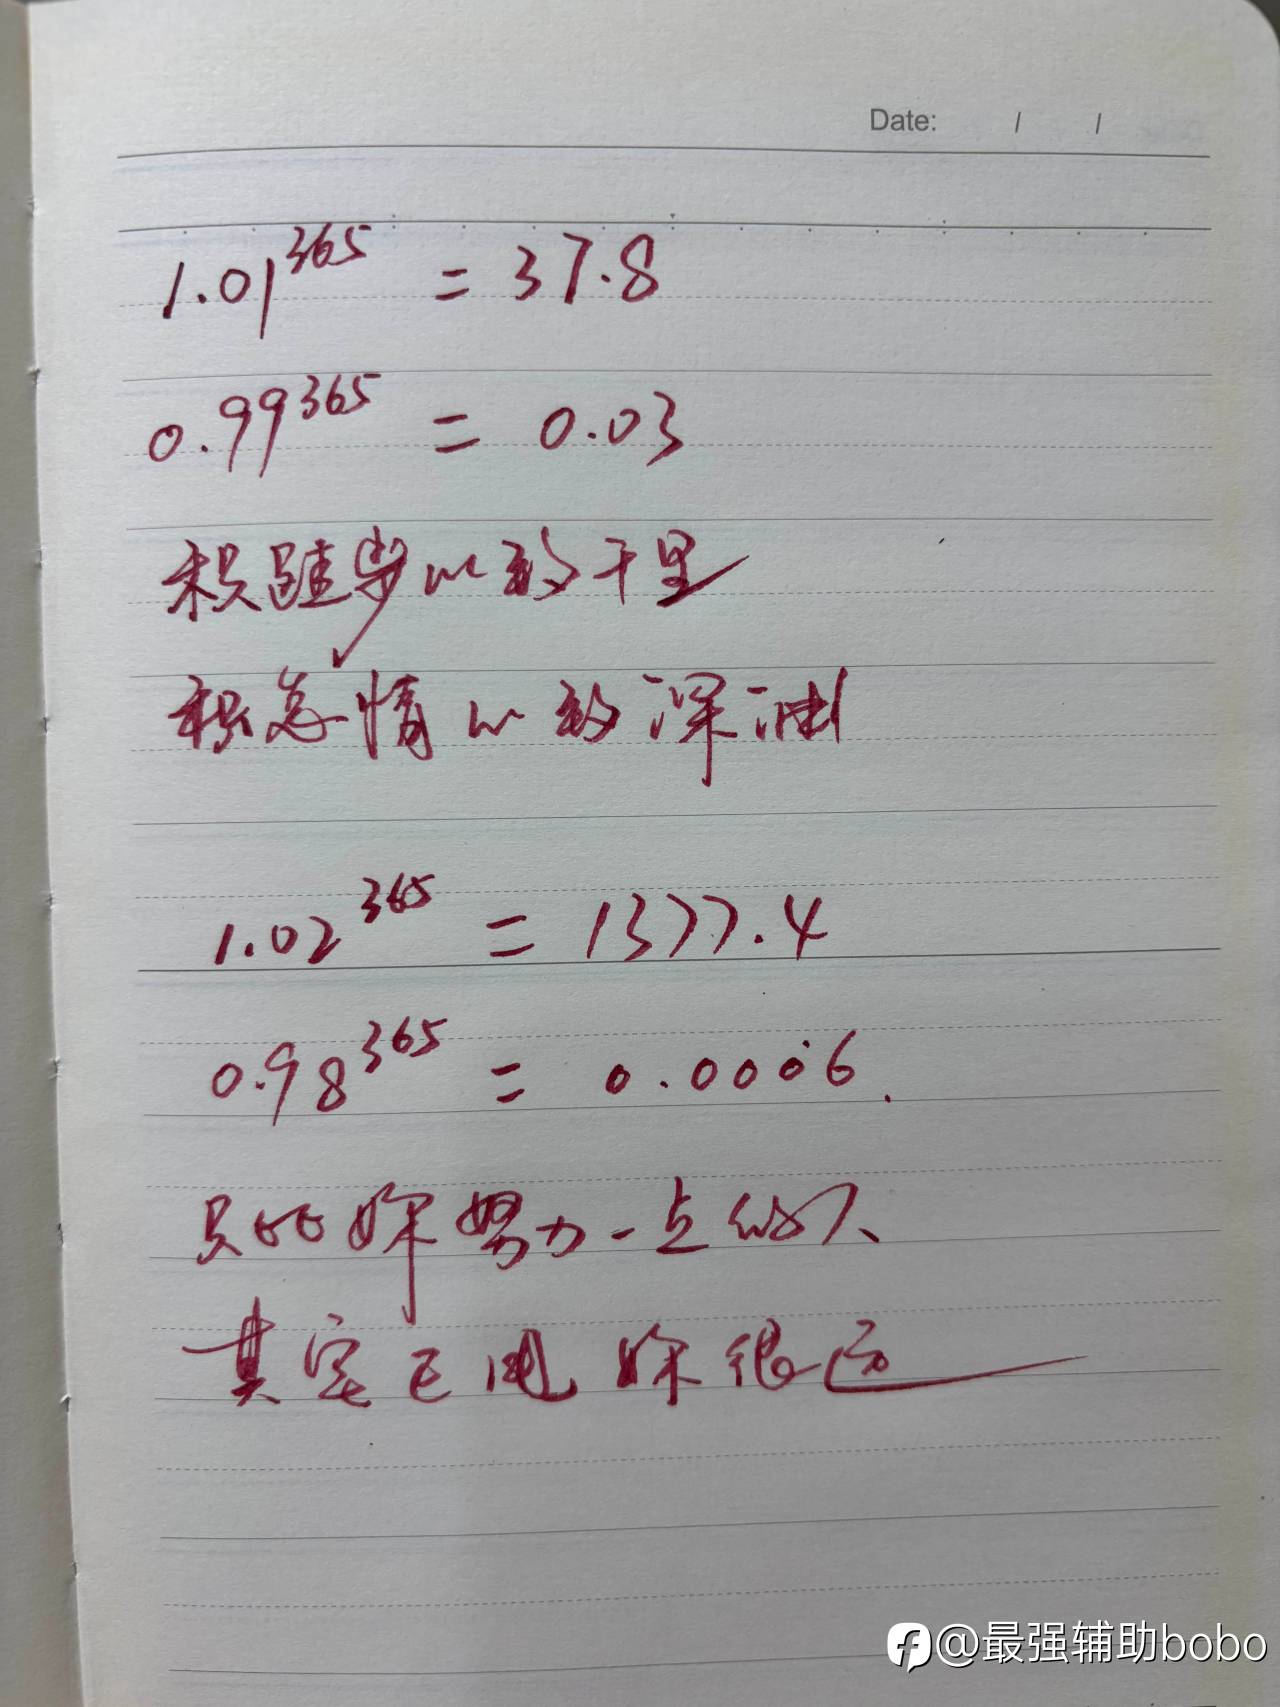 Date: / /
1.01³⁶⁵ = 37.8
0.99³⁶⁵ = 0.03
积跬步以致千里
积怠惰以致深渊
1.02³⁶⁵ = 1377.4
0.98³⁶⁵ = 0.0006.
只比你努力一点的人
其实已甩你很远
@最强辅助bobo